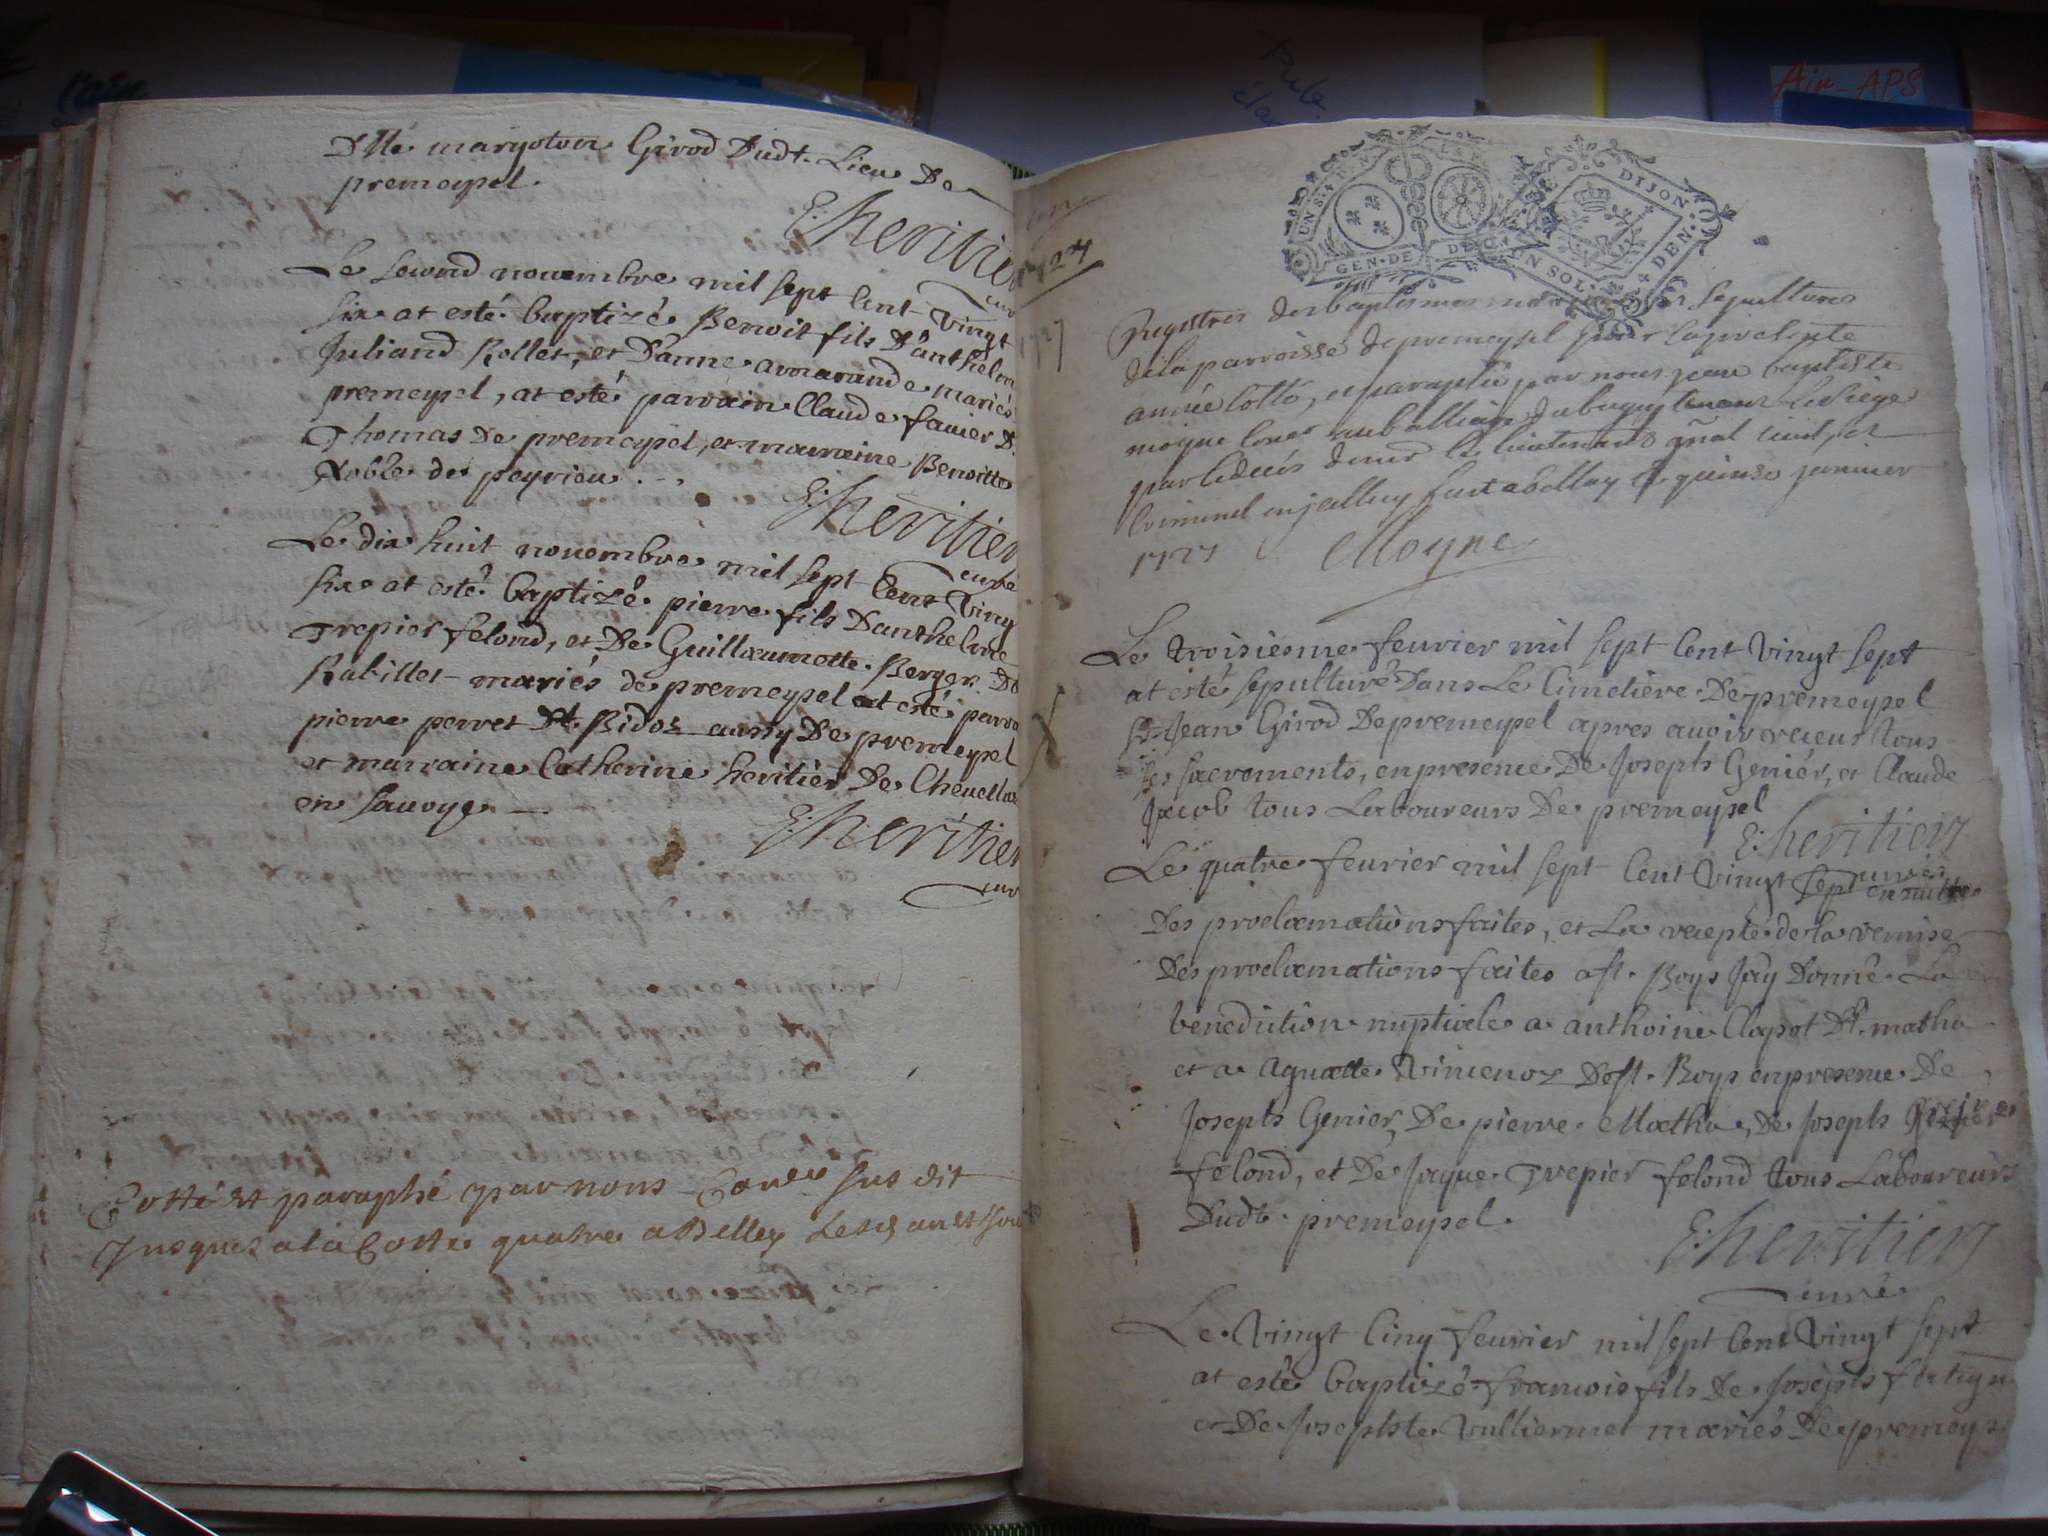 Dlle margoton Girod Dudt. Lieu De
premeysel.
E: heritier
cur
Le second nouembre mil sept Cent Vingt
six at esté baptizé Benoit fils D'anthelm
Juliand Rollet, et D'anne amarande mariés
premeysel, at esté parrain Claude fauier D.
Thomas De premeysel, et marraine Benoitte
Noble de peyrieu.
E: heritier
curé
Le dix huit nouembre mil sept Cent Ving
six at esté baptizé pierre fils D'anthelme
Trepier felond, et De Guillaumette Berger De
Rabillet mariés de premeysel at esté parra
pierre perret Dt. Bidoz aussy De premeysel
et marraine Catherine heritier De Cheuellu
en sauoye
E: heritier
cur
Cotté et paraphé par nons Coner sus dit
Jusques a la Cotte quatre a Belley Lesd an et Jour
1727
UN SOL
GEN. DE DIJON
UN SOL 4 DEN.
Registres des baptismes mar Sepultures
de la parroisse de premeysel pour la presente
année Cotté, et paraphé par nous jean baptiste
moyne Coner au balliage du bugey tenant le siege
par le decés de mr le lieutenant gñal ciuil, et
Criminel en jcelluy fait a belley le quinze januier
1727 Moyne
Le troisiesme feurier mil sept Cent Vingt sept
at esté sepulturé Dans Le Cimetière De premeysel
Sr. Jean Girod De premeysel apres auoir receut tous
les sacrements, en presence De Joseph Genier, et Claude
Jacob tous Laboureurs De premeysel
E: heritier
curé
Le quatre feurier mil sept Cent Vingt sept ensuitte
Des proclamations faites, et La recepte de la remise
Des proclamations faites a st. Boys Jay Donné La
benediction nuptiale a anthoine Clapot Dt. matho
et a Aguatte Vincenoz De st. Boys en presence De
Joseph Genier, De pierre Matho, De Joseph
felond, et De Jaque Trepier felond tous Laboureurs
Dudt. premeysel.
E: heritier
curé
Le Vingt Cinq feurier mil sept Cent Vingt sept
at esté baptizé francois fils De Joseph
et De Josephte Vulliermet mariés De premeys
Air-APS